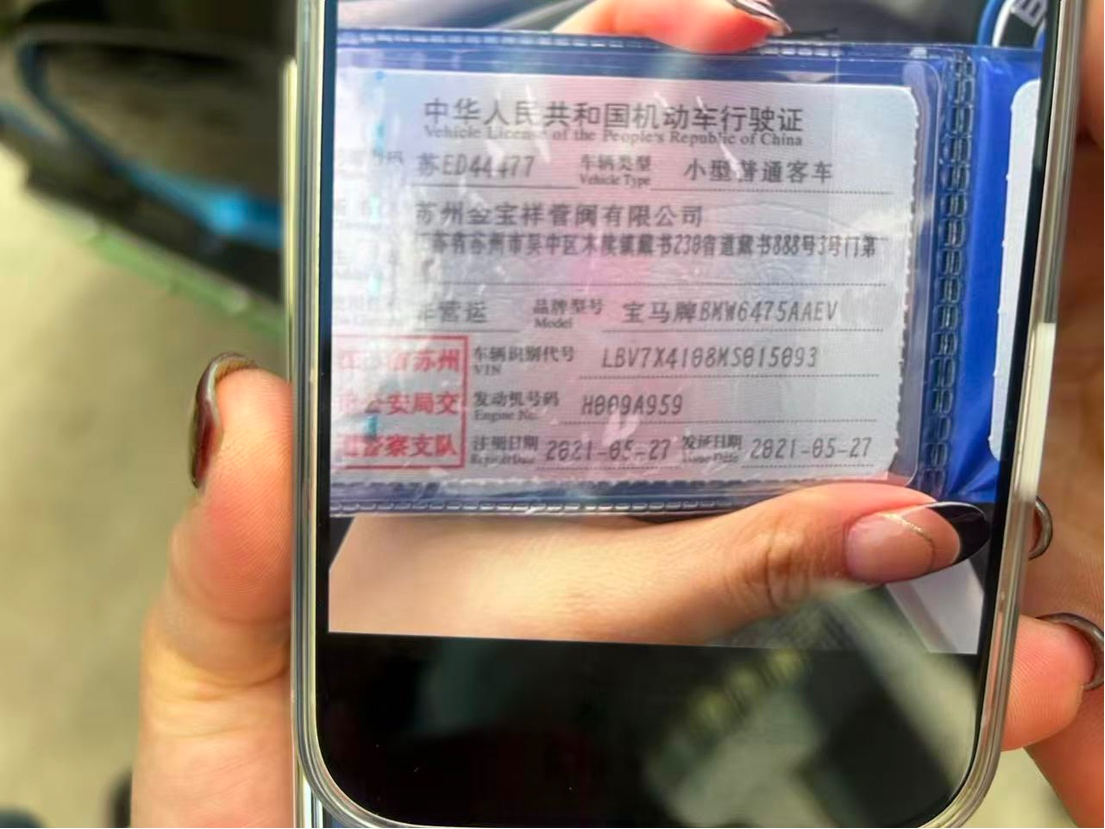 中华人民共和国机动车行驶证
Vehicle License of the People's Republic of China
号码 苏ED44477 车辆类型 Vehicle Type 小型普通客车
苏州金宝祥管阀有限公司
苏省苏州市吴中区木渎镇藏书230省道藏书888号3号门第
非营运 品牌型号 Model 宝马牌BMW6475AAEV
江苏省苏州 车辆识别代号 VIN LBV7X4108MS015093
市公安局交 发动机号码 Engine No. H009A959
通警察支队 注册日期 Register Date 2021-05-27 发证日期 Issue Date 2021-05-27